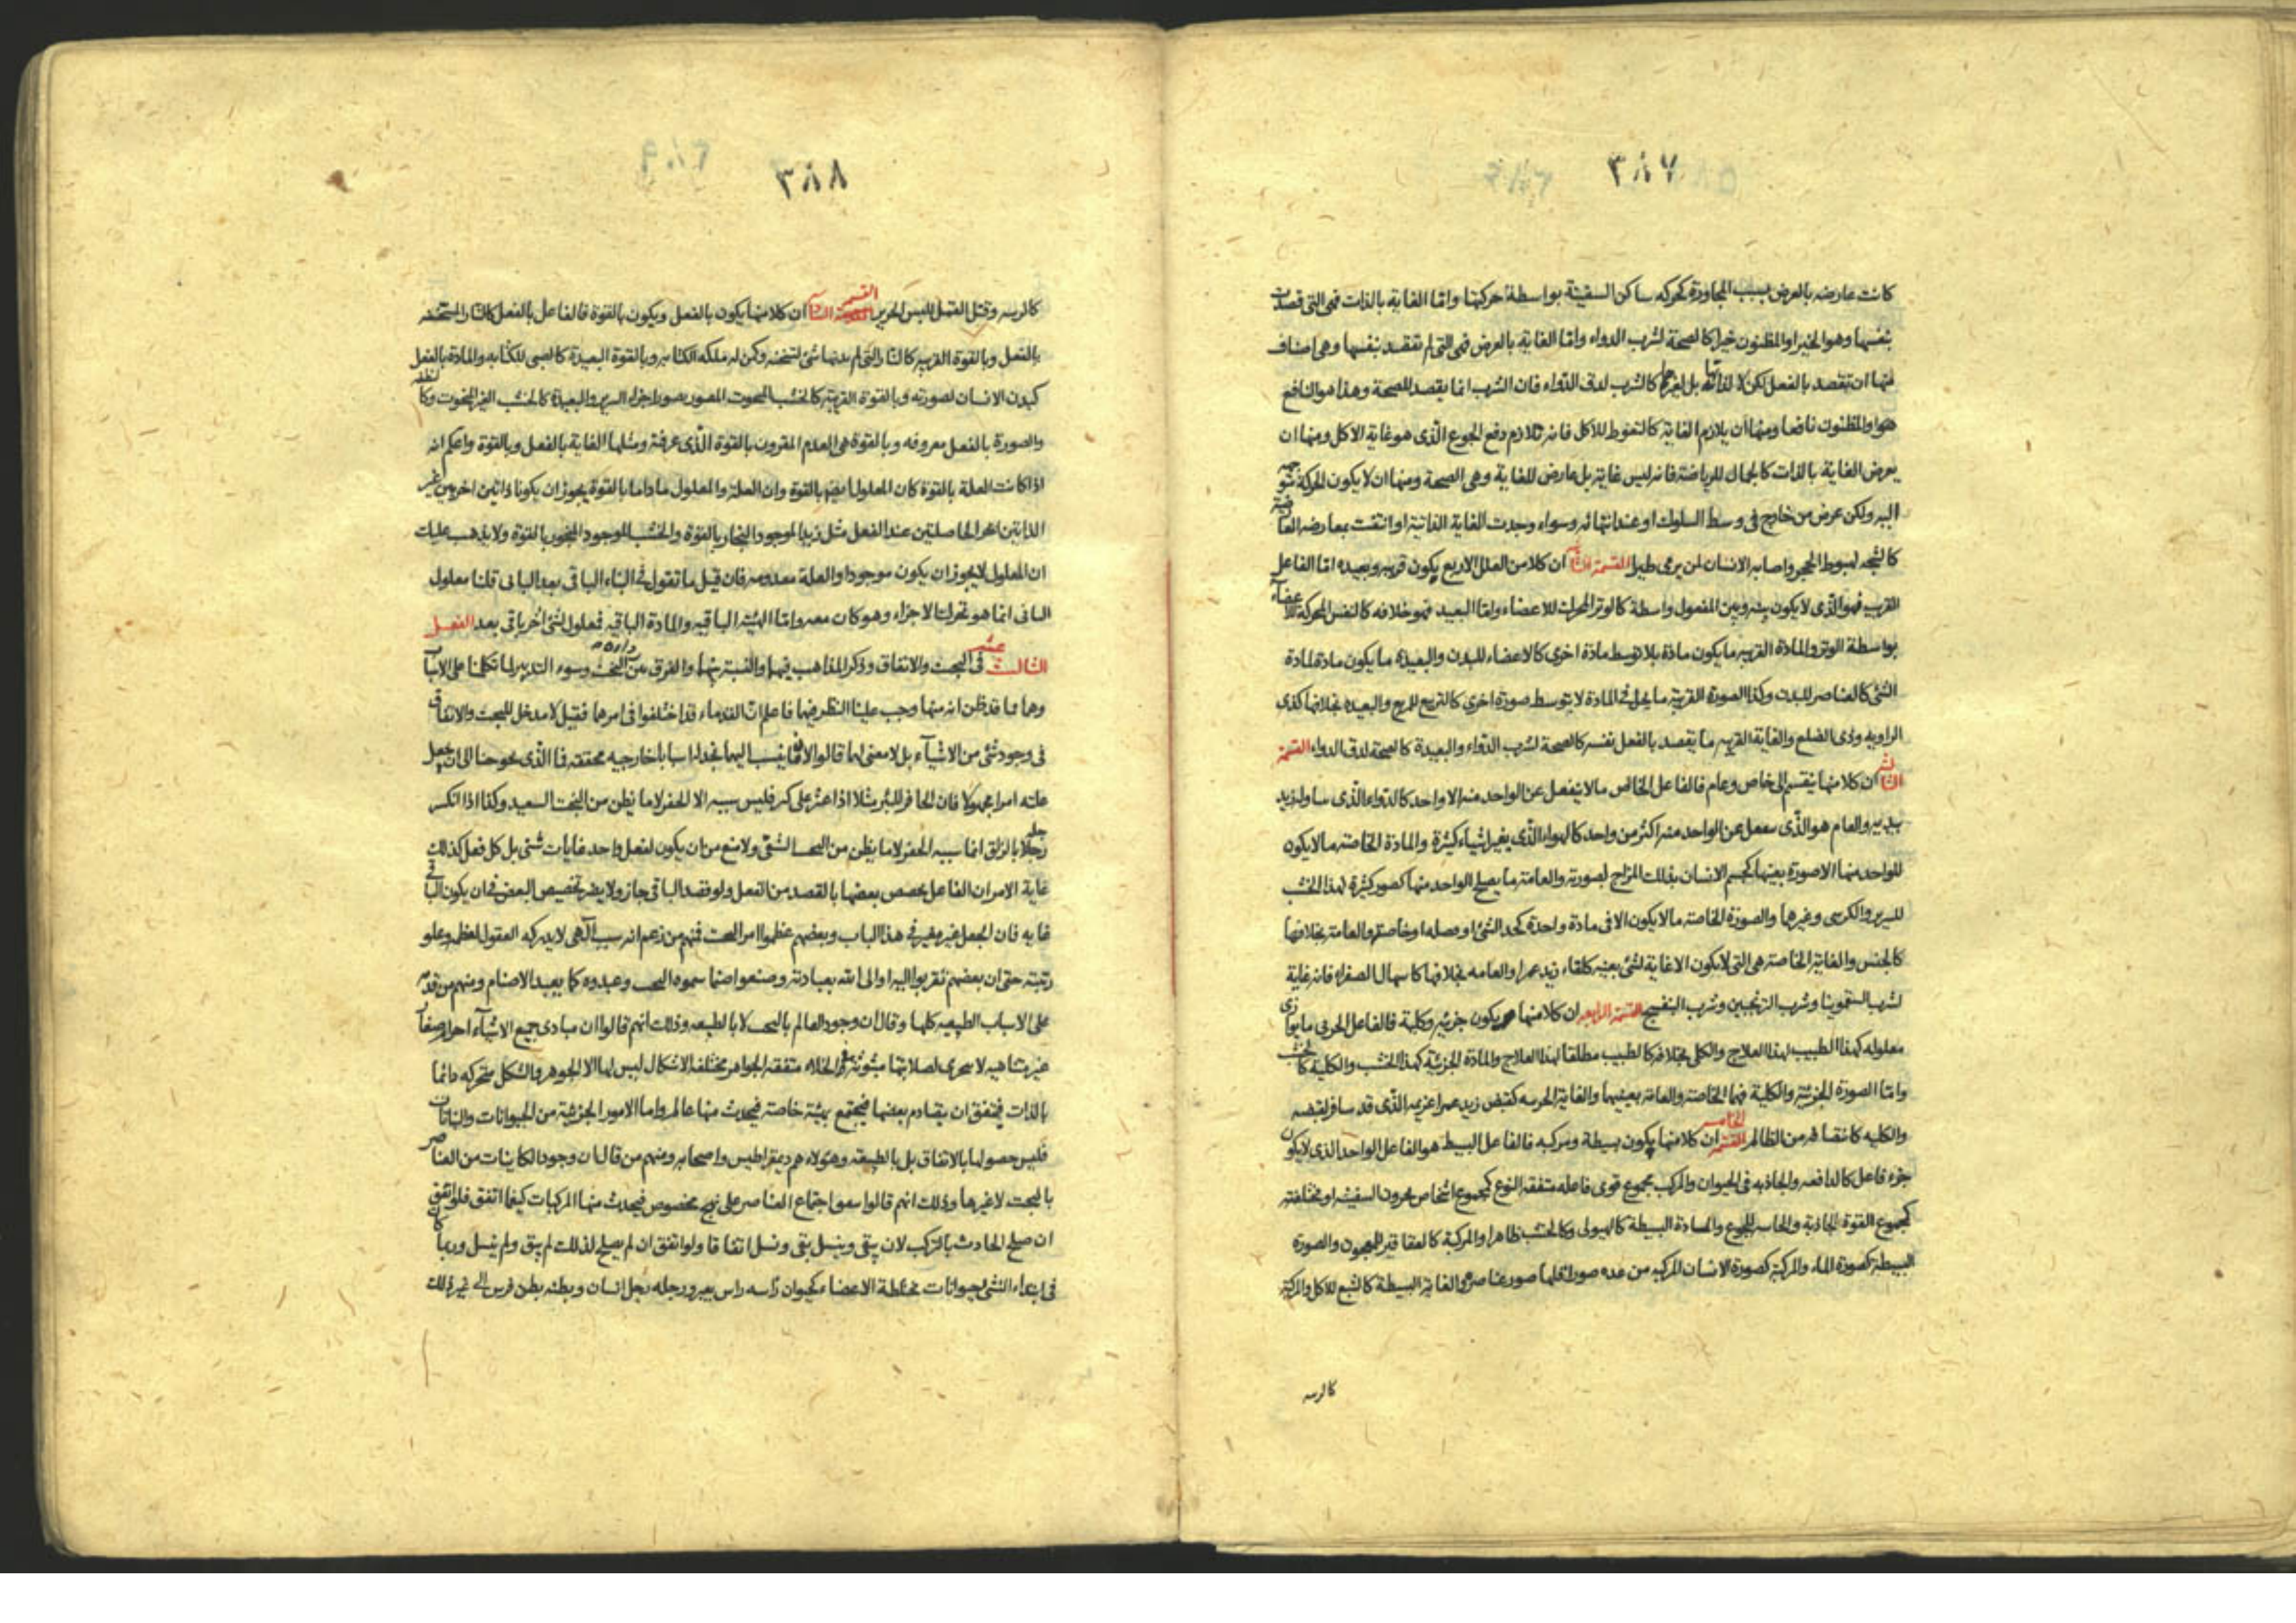 ٣٨٧
كانت عارضه بالعرض بسبب المجاورة كحركه ساكن السفينة بواسطة حركتها واما الغاية بالذات فهي التي قصدت
بنفسها وهو الخير او المظنون خيرا كالصحة لشرب الدواء واما الغاية بالعرض فهي التي لم تقصد بنفسها وهي اصناف
منها ان تقصد بالفعل لكن لا لذاتها بل لغيرها كالشرب لدق الدواء فان الشرب انما يقصد للصحة وهذا هو النافع
هو او المظنون نافعا ومنها ان يلازم الغاية كالتغوط للاكل فانه تلازم دفع الجوع الذى هو غاية الاكل ومنها ان
يعرض الغاية بالذات كالجمال للرياضة فانه ليس غاية بل عارض للغاية وهي الصحة ومنها ان لا يكون الحركة متوجهة
اليه ولكن عرض من خارج في وسط السلوك او عند انتهائه وسواء وجدت الغاية الذاتية او انتفت بمعارضه العا
كالشجه لهبوط الحجر واصابه الانسان لمن يرمى طيرا القسمة الثانية ان كلا من العلل الاربع يكون قريبه وبعيده اما الفاعل
القريب فهو الذى لا يكون بينه وبين المفعول واسطة كالوتر المحرك للاعضاء واما البعيد فهو خلافه كالنفس المحركة للاعضاء
بواسطة الوتر والمادة القريبه ما يكون مادة بلا توسط مادة اخرى كالاعضاء للبدن والبعيدة ما يكون مادة لمادة
الشئ كالعناصر للبدن وكذا الصورة القريبة ما يحل في المادة لا بتوسط صورة اخرى كالتربيع للمربع والبعيده بخلافها كذى
الزاويه وذى الضلع والغاية القريبه ما يقصد بالفعل نفسه كالصحة لشرب الدواء والبعيدة كالصحة لدق الدواء القسمة
الثالثه ان كلا منها ينقسم الى خاص وعام فالفاعل الخاص ما لا ينفعل عن الواحد منه الا واحد كالدواء الذى يتناوله زيد
بيديه والعام هو الذى ينفعل عن الواحد منه اكثر من واحد كالهواء الذى يغير اشياء كثيرة والمادة الخاصة ما لا يكون
للواحد منها الا صورة بعينها كجسم الانسان بذلك المزاج لصورته والعامة ما يصلح الواحد منها لصور كثيرة كهذا الخشب
للسرير والكرسى وغيرها والصورة الخاصة ما لا يكون الا فى مادة واحدة كحد الشئ او فصله او خاصته والعامة بخلافها
كالجنس والغاية الخاصة هى التى لا يكون الا غاية لشئ بعينه كلقاء زيد عمرا والعامه بخلافها كاسهال الصفراء فانه غاية
لشرب السقمونيا وشرب الترنجبين وشرب البنفسج القسمة الرابعه ان كلا منها يكون جزئية وكلية فالفاعل الجزئى ما يوازى
معلوله كهذا الطبيب لهذا العلاج والكلى بخلافه كالطبيب مطلقا لهذا العلاج والمادة الجزئية كهذا الخشب والكلية كالخشب
واما الصورة الجزئية والكلية فهما الخاصة والعامة بعينهما والغاية الجزئيه كقبض زيد عمرا غريمه الذى قد سافر لقبضه
والكليه كانتصافه من الظالم القسمة الخامس ان كلا منها يكون بسيطة ومركبه فالفاعل البسيط هو الفاعل الواحد الذى لا يكون
جزء فاعل كالدافعه والجاذبه فى الحيوان والمركب مجموع قوى فاعله متفقه النوع كمجموع اشخاص يجرون السفينه او مختلفته
كمجموع القوة الجاذبة والحاسه للجوع والمادة البسيطة كالهيولى وكالخشب ظاهرا والمركبة كالعقاقير للمعجون والصورة
البسيطة كصورة الماء والمركبة كصورة الانسان المركبه من عده صور اقلها صور عناصره والغاية البسيطة كالشبع للاكل والمركبة
كالرسه
٣٨٨
كالرسه وقتل القمل للبس الحرير القسم ان كلا منها يكون بالفعل ويكون بالقوة فالفاعل بالفعل كالنار المسخنه
بالفعل وبالقوة القريبه كالنار التى لم يدنها شئ لتسخنه وكمن له ملكه الكتابه وبالقوة البعيدة كالصبى للكتابه والمادة بالفعل
كبدن الانسان لصورته وبالقوة القريبة كالخشب المنحوت المصور بصور اجزاء السرير والبعيدة كالخشب الغير المنحوت وكالنطفه
والصورة بالفعل معروفه وبالقوة هى العدم المقرون بالقوة الذى عرفته ومثلها الغاية بالفعل وبالقوة واعلم انه
اذا كانت العلة بالقوة كان المعلول ايضا بالقوة وان العلة والمعلول ما داما بالقوة يجوز ان يكونا ذاتين اخريين غير
الذاتين الحاصلتين عند الفعل مثل زيد الموجود النجار بالقوة والخشب الموجود المنجور بالقوة ولا يذهب عليك
ان المعلول لا يجوز ان يكون موجودا والعلة معدومه فان قيل ما تقول فى البناء الباقى بعد البانى قلنا معلول
البانى انما هو تحركات الاجزاء وهو كان معه واما الهيئة الباقيه والمادة الباقيه فمعلول لشئ اخر باقى بعد الفصل
الثالث عشر فى البخت والاتفاق وذكر المذاهب فيهما والنسبة بينهما والفرق بين البخت وسوء التدبير لما تكلمنا على الاسباب
وهما مما قد ظن انه منها وجب علينا النظر فيها فاعلم ان القدماء قد اختلفوا فى امرها فقيل لا مدخل للبخت والاتفاق
فى وجود شئ من الاشياء بل لا معنى لهما قالوا لانا فيما ينسب اليهما نجد اسبابا خارجيه محققه فما الذى يحوجنا الى ان نجعل
علته امرا مجهولا فان الحافر للبئر مثلا اذا عثر على كنز فليس سببه الا الحفر لا ما يظن من البخت السعيد وكذا اذا انكسر
رجله بالزلق انما سببه الحفر لا ما يظن من البخت الشقى ولا منع من ان يكون لفعل واحد غايات شتى بل كل فعل كذالك
غاية الامر ان الفاعل يخصص بعضها بالقصد من الفعل ولو فقصد الباقى جاز ولا يضر تخصيص البعض فى ان يكون الباقى
غايه فان الجعل غير مغير فى هذا الباب وبعضهم عظموا امر البخت فمنهم من زعم انه سبب الهى لا يدركه العقول لعظمه وعلو
رتبته حتى ان بعضهم تقربوا اليه او الى الله بعبادته وصنعوا صنما سموه البخت وعبدوه كما يعبد الاصنام ومنهم من قدمه
على الاسباب الطبيعيه كلها وقال ان وجود العالم بالبخت لا بالطبيعه وذلك انهم قالوا ان مبادى جميع الاشياء اجرام صغار
غير متناهيه لا تتجزى لصلابتها مبثوثه فى الخلاء متفقه الجواهر مختلفه الاشكال ليس لها الا الجوهر والشكل متحركه دائما
بالذات فيتفق ان يتصادم بعضها فيجتمع بهيئة خاصة فيحدث منها عالم واما الامور الجزئية من الحيوانات والنباتات
فليس حصولها بالاتفاق بل بالطبيعه وهؤلاء هم ديمقراطيس واصحابه ومنهم من قال بان وجود الكاينات من العناصر
بالبخت لا غيرها وذلك انهم قالوا يتفق اجتماع العناصر على نهج مخصوص فيحدث منها المركبات كيفما اتفق فلو اتفق
ان صلح الحادث بالتركب لان يبقى وينسل بقى ونسل اتفاقا ولو اتفق ان لم يصلح لذلك لم يبق ولم ينسل وربما كان
فى ابتداء النشئ حيوانات مختلطة الاعضاء كحيوان رأسه رأس بعير ورجله رجل انسان وبطنه بطن فرس الى غير ذلك